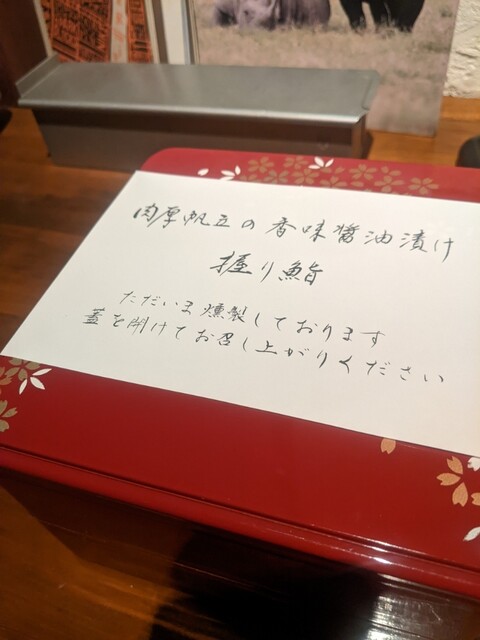 肉厚帆立の香味醤油漬け
握り鮨
ただいま燻製しております
蓋を開けてお召し上がりください